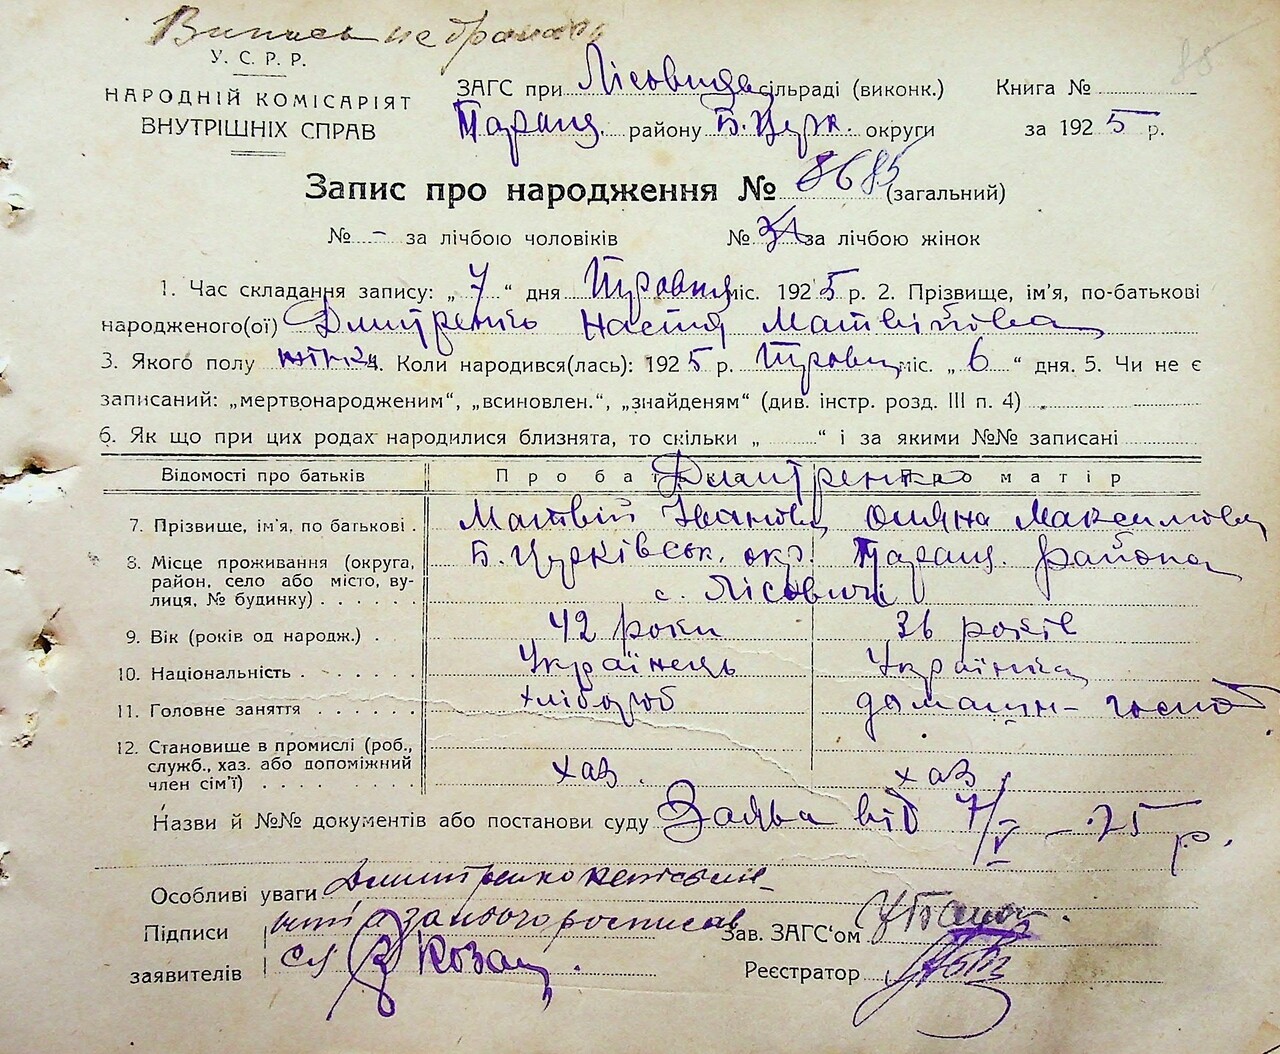 Випись не брана
У. С. Р. Р.
НАРОДНІЙ КОМІСАРІЯТ
ВНУТРІШНІХ СПРАВ
ЗАГС при Лісовицькій сільраді (виконк.) Книга №
Таращ. району Б. Церк. округи за 1925 р.
Запис про народження № 8685 (загальний)
№ - за лічбою чоловіків № за лічбою жінок
1. Час складання запису: „7“ дня Травня міс. 1925 р. 2. Прізвище, ім'я, по-батькові
народженого(ої) Дмитренко Настя Матвійовна
3. Якого полу жінка 4. Коли народився(лась): 1925 р. Травня міс. „6“ дня. 5. Чи не є
записаний: „мертвонародженим“, „всиновлен.“, „знайденям“ (див. інстр. розд. III п. 4)
6. Як що при цих родах народилися близнята, то скільки „ “ і за якими №№ записані
Відомості про батьків Про батька Про матір
Дмитренко
7. Прізвище, ім'я, по батькові . Матвій Іванович Оляна Максимовна
8. Місце проживання (округа, район, село або місто, вулиця, № будинку) . . . . . . Б. Церківськ. окр. Таращ. району
с. Лісовичі
9. Вік (років од народж.) . 42 роки 36 років
10. Національність . . . . . . Українець Українка
11. Головне заняття . . . . . . хлібороб домашн- госпо
12. Становище в промислі (роб., служб., хаз. або допоміжний член сім'ї) . . . . . . . . хаз. хаз.
Назви й №№ документів або постанови суду Заява від 7/V - 25 р.
Особливі уваги Дмитренко неписьмен-
Підписи за нього росписався
заявителів Козац
Зав. ЗАГС'ом
Реєстратор